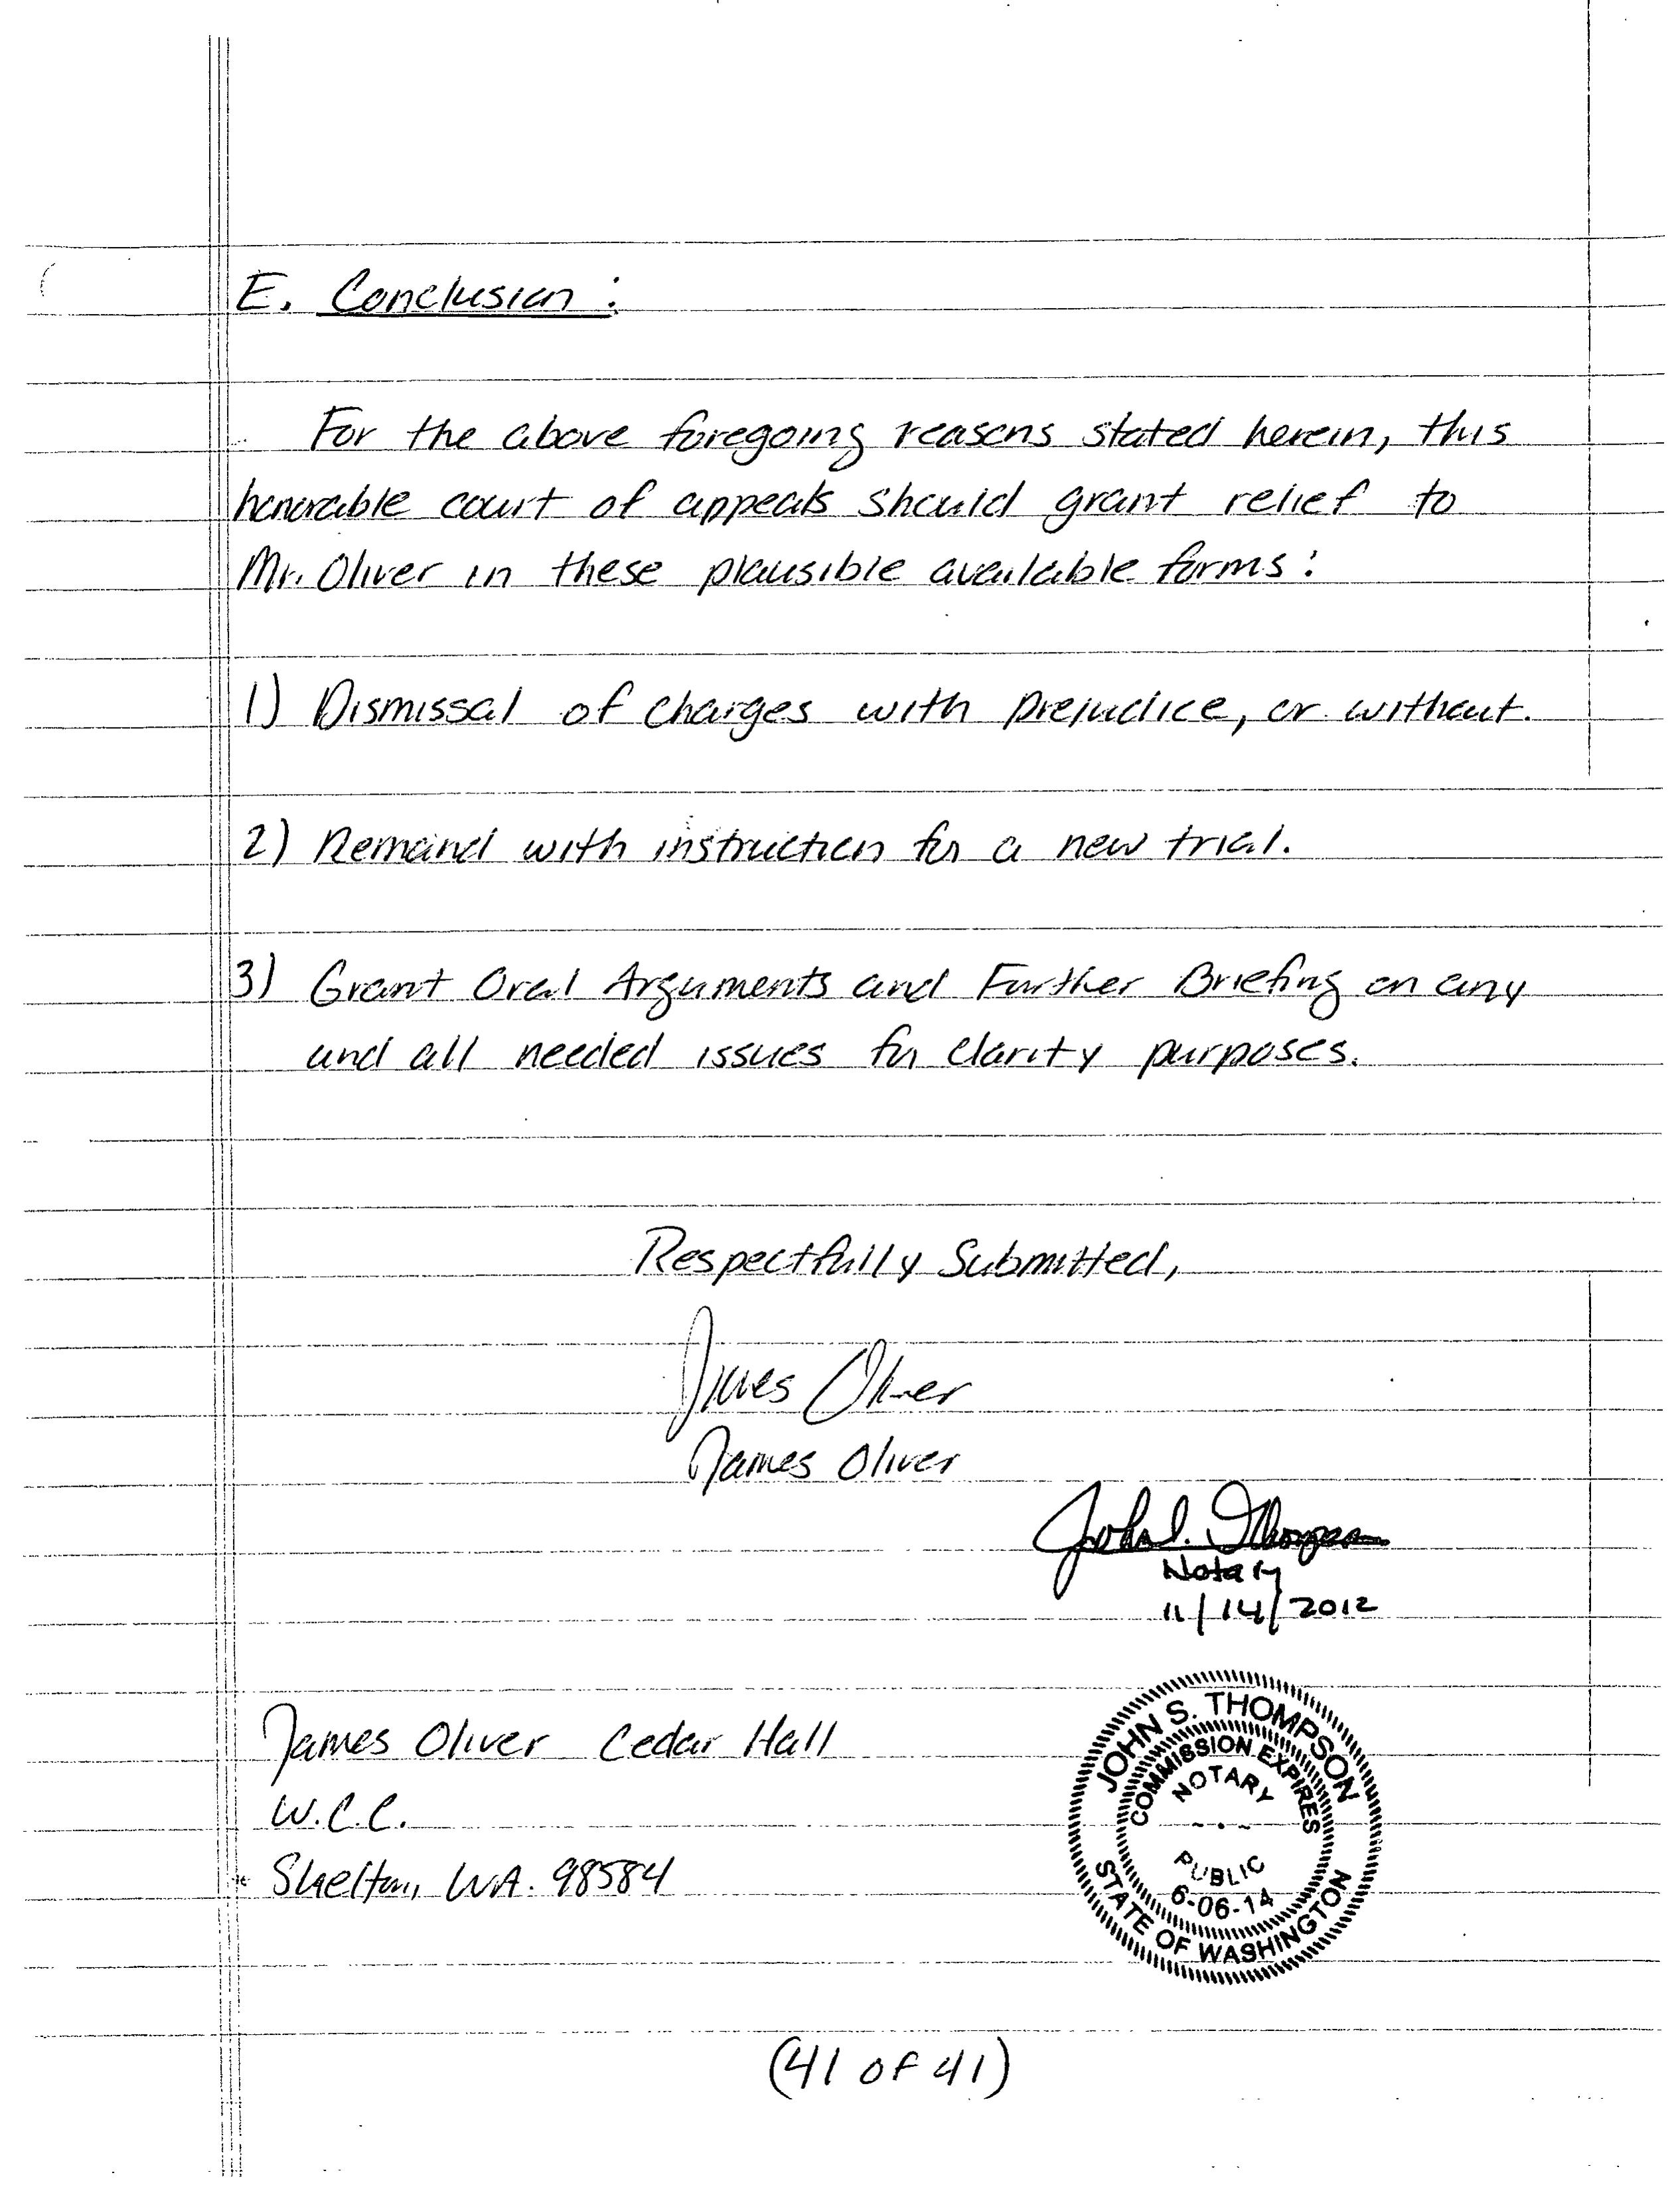 E. Conclusion:
For the above foregoing reasons stated herein, this
honorable court of appeals should grant relief to
Mr. Oliver in these plausible available forms:
1) Dismissal of charges with prejudice, or without.
2) Remand with instruction for a new trial.
3) Grant Oral Arguments and Further Briefing on any
and all needed issues for clarity purposes.
Respectfully Submitted,
James Oliver
James Oliver
John S. Thompson
Notary
11/14/2012
James Oliver Cedar Hall
W.C.C.
Shelton, WA. 98584
JOHN S. THOMPSON
COMMISSION EXPIRES
NOTARY
PUBLIC
6-06-14
STATE OF WASHINGTON
(41 of 41)